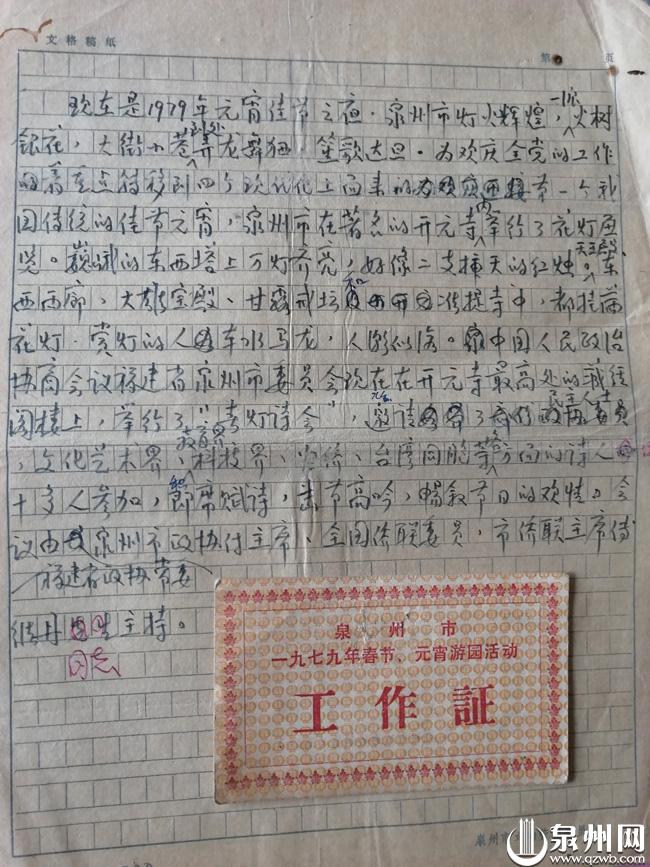 文格稿纸
第 页
现在是1979年元宵佳节之夜．泉州市灯火辉煌，一派火树
银花，大街小巷到处弄龙舞狮，笙歌达旦。为欢庆全党的工作
的着重点转移到四个现代化上面来的第一个我
国传统的佳节元宵，泉州市在著名的开元寺内举行了花灯展
览。巍峨的东西塔上万灯齐亮，好像二支插天的红烛。天王殿、东
西两廊、大雄宝殿、甘露戒坛和准提寺中，都挂满
花灯．赏灯的人车水马龙，人影似海。中国人民政治
协商会议福建省泉州市委员会现在在开元寺最高处的藏经
阁楼上，举行了"元宵赏灯诗会"，邀请了政协委员民主人士
，文化艺术界、教育界、科技界、归侨、台湾同胞等各方面的诗人
十多人参加，即席赋诗，击节高吟，畅叙节日的欢情。会
议由泉州市政协付主席、全国侨联委员，市侨联主席
福建省政协常委
继丹同志主持。
泉州市
一九七九年春节、元宵游园活动
工作証
泉州市
泉州网
www.qzwb.com